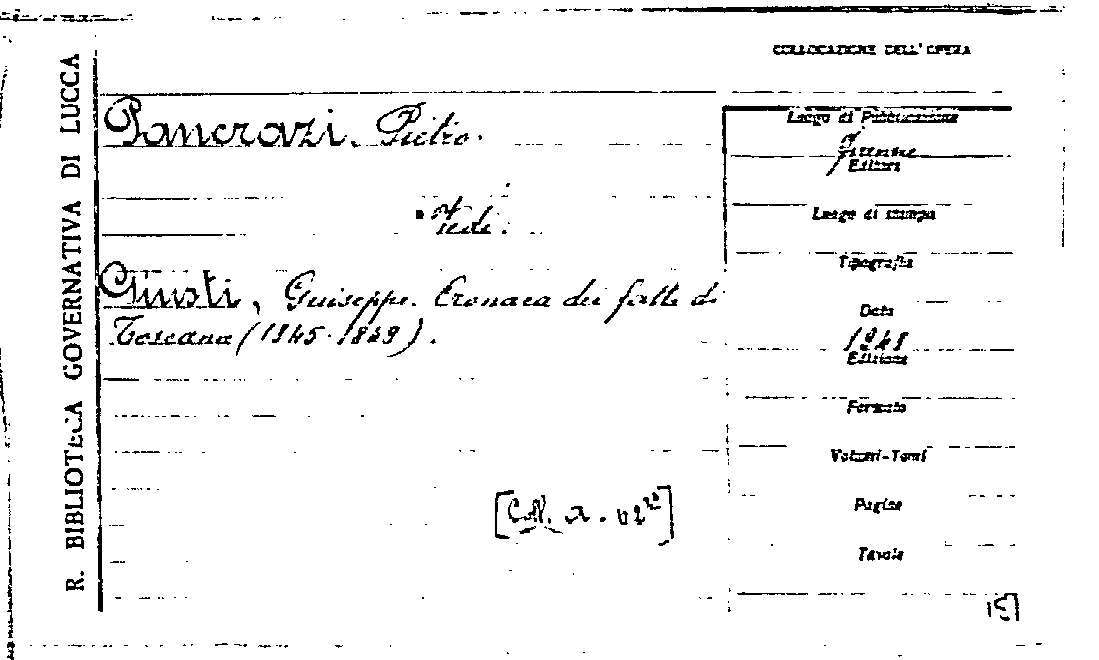 R. BIBLIOTECA GOVERNATIVA DI LUCCA
COLLOCAZIONE DELL'OPERA
Pancrazi, Pietro.
Vedi:
Giusti, Guiseppe. Cronaca dei fatti di
Toscana (1845-1849).
[Coll. a.
Luogo di Pubblicazione
Firenze
Editore
Luogo di stampa
Tipografia
Data
1948
Edizione
Formato
Volumi-Tomi
Pagine
Tavole